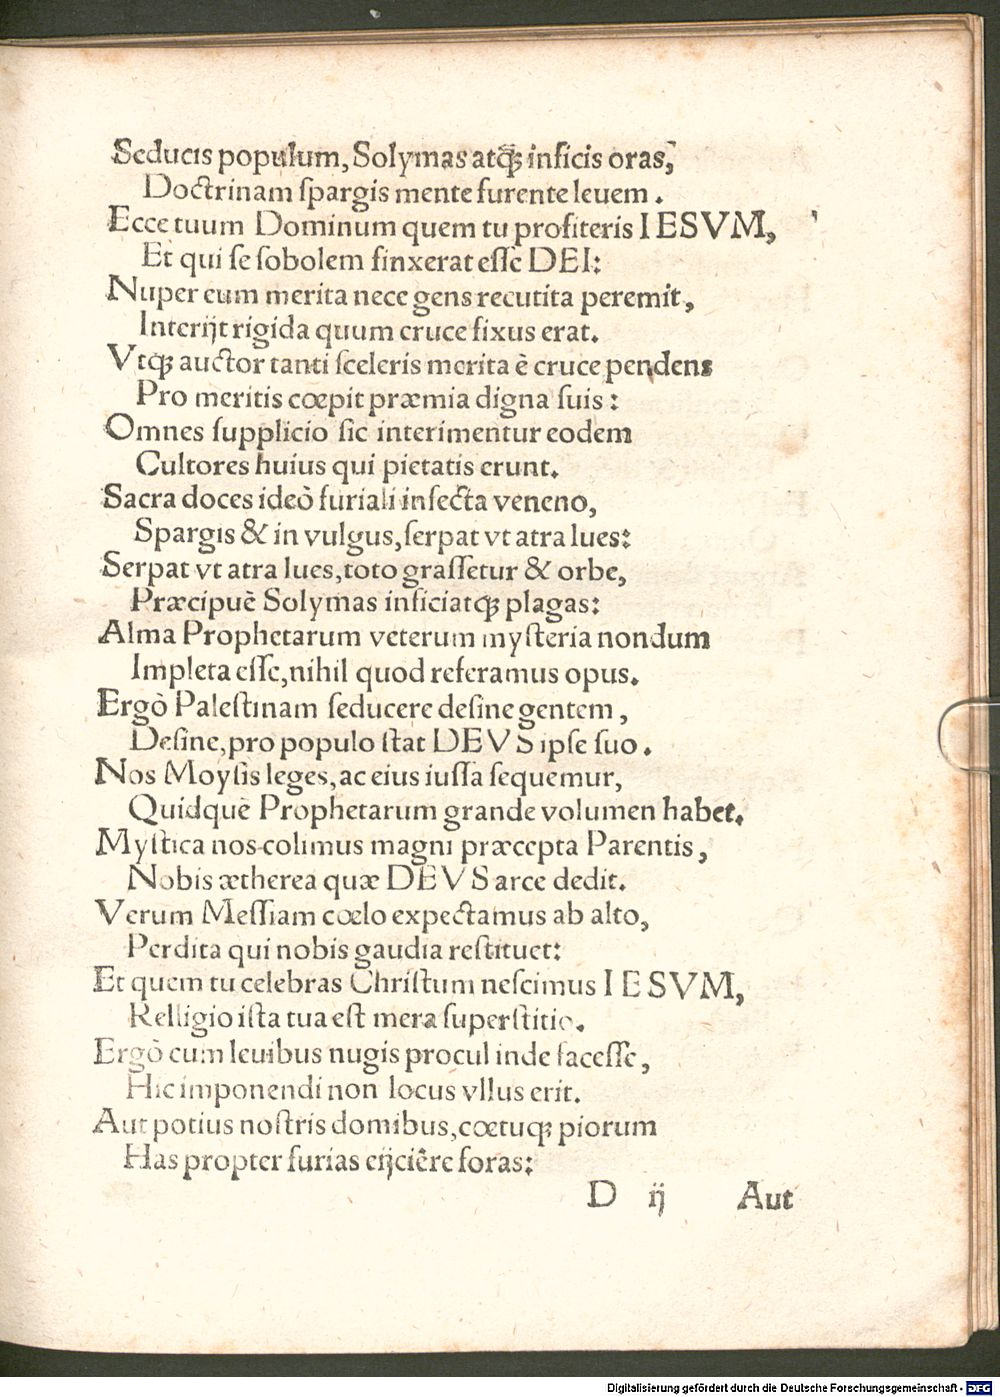 Seducis populum, Solymas atq́ꝫ inficis oras,
Doctrinam ſpargis mente furente leuem.
Ecce tuum Dominum quem tu profiteris IESVM,
Et qui ſe ſobolem finxerat eſſe DEI:
Nuper eum merita nece gens recutita peremit,
Interijt rigida quum cruce fixus erat.
Vtqꝫ auctor tanti ſceleris merita è cruce pendens
Pro meritis cœpit præmia digna ſuis:
Omnes ſupplicio ſic interimentur eodem
Cultores huius qui pietatis erunt.
Sacra doces ideò furiali infecta veneno,
Spargis & in vulgus, ſerpat vt atra lues:
Serpat vt atra lues, toto graſſetur & orbe,
Præcipuè Solymas inficiatqꝫ plagas:
Alma Prophetarum veterum myſteria nondum
Impleta eſſe, nihil quod referamus opus.
Ergò Paleſtinam ſeducere deſine gentem,
Deſine, pro populo ſtat DEVS ipſe ſuo.
Nos Moyſis leges, ac eius iuſſa ſequemur,
Quidquè Prophetarum grande volumen habet.
Myſtica nos colimus magni præcepta Parentis,
Nobis ætherea quæ DEVS arce dedit.
Verum Meſſiam cœlo expectamus ab alto,
Perdita qui nobis gaudia reſtituet:
Et quem tu celebras Chriſtum neſcimus IESVM,
Relligio iſta tua eſt mera ſuperſtitio.
Ergò cum leuibus nugis procul inde faceſſe,
Hic imponendi non locus vllus erit.
Aut potius noſtris domibus, cœtuqꝫ piorum
Has propter furias eijciêre foras:
D ij Aut
Digitalisierung gefördert durch die Deutsche Forschungsgemeinschaft - DFG